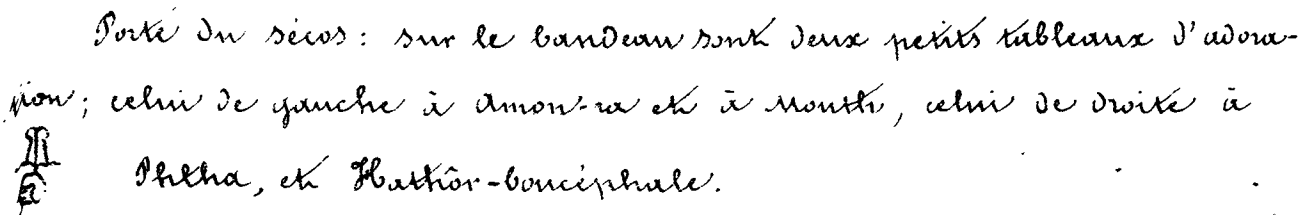 Porte du sécos : sur le bandeau sont deux petits tableaux d'adora-
tion ; celui de gauche à Amon-ra et à Month, celui de droite à
Phtha, et Hathôr-boucéphale.